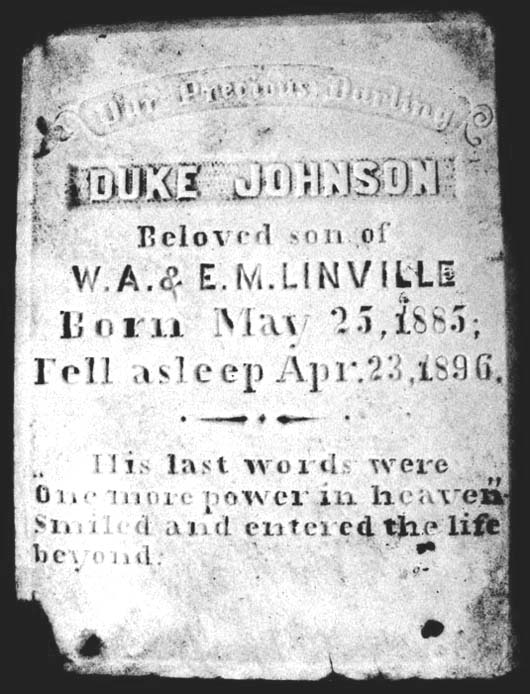 Our Precious Darling
DUKE JOHNSON
Beloved son of
W. A. & E. M. LINVILLE
Born May 25, 1885;
Fell asleep Apr. 23, 1896.
His last words were
„One more power in heaven”
Smiled and entered the life
beyond.